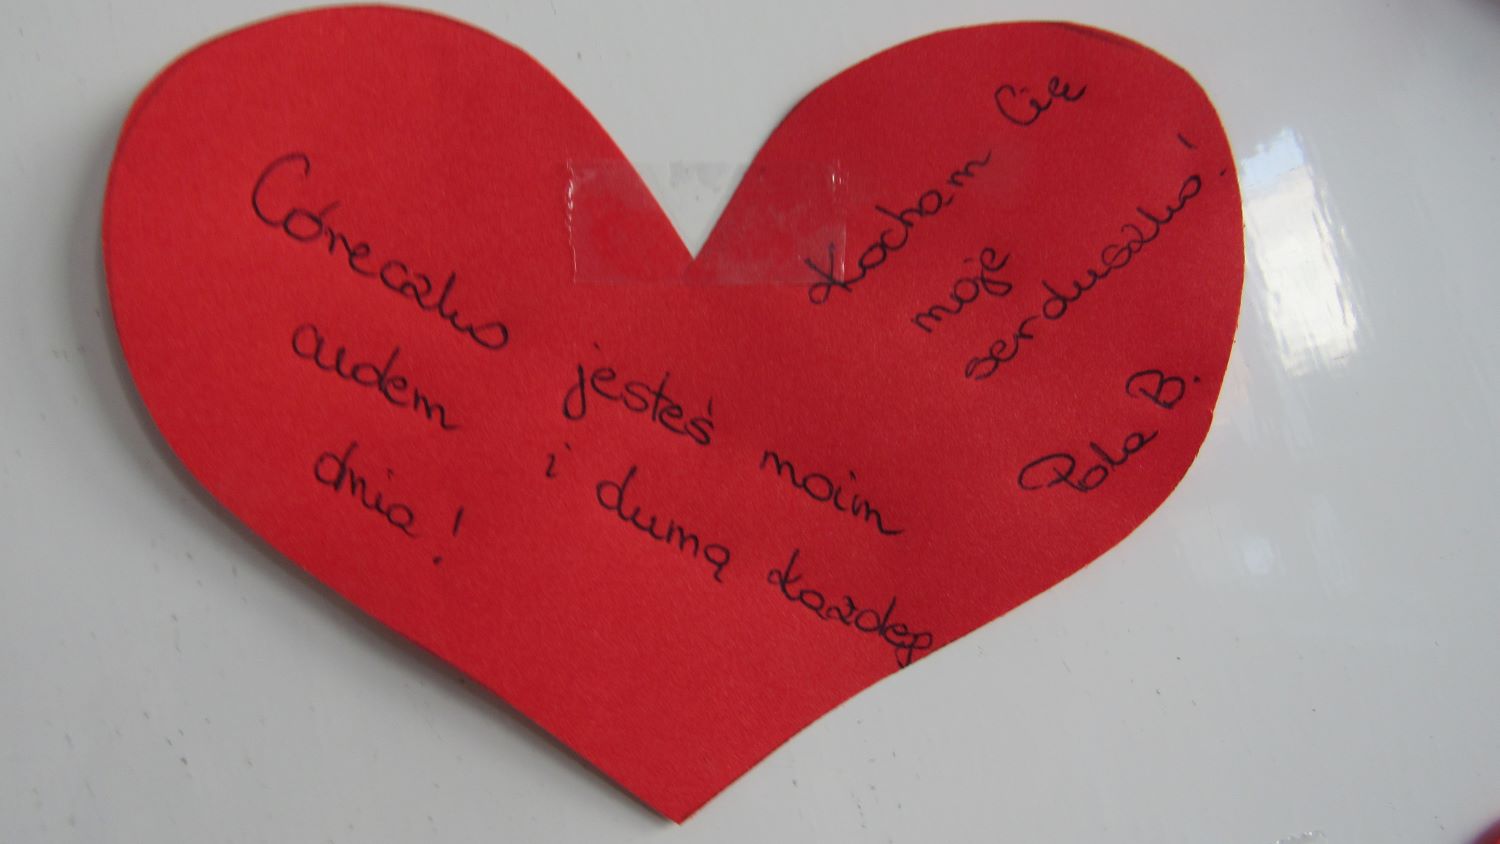 Córeczko jesteś moim
cudem i dumą każdego
dnia!
Kocham Cię
moje
serduszko!
Pola B.